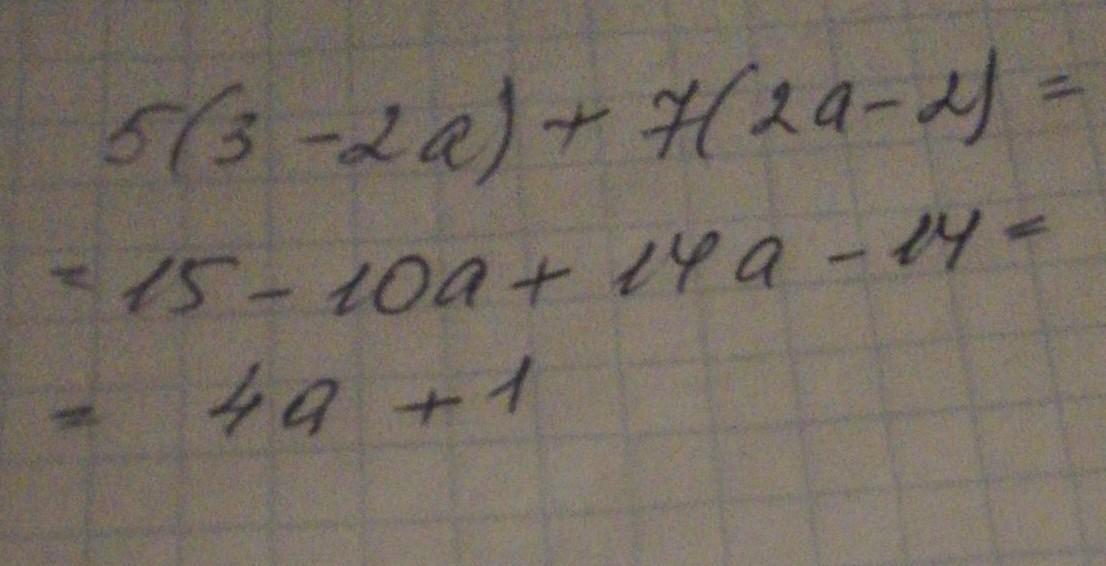 5(3 - 2a) + 7(2a - 2) =
= 15 - 10a + 14a - 14 =
= 4a + 1